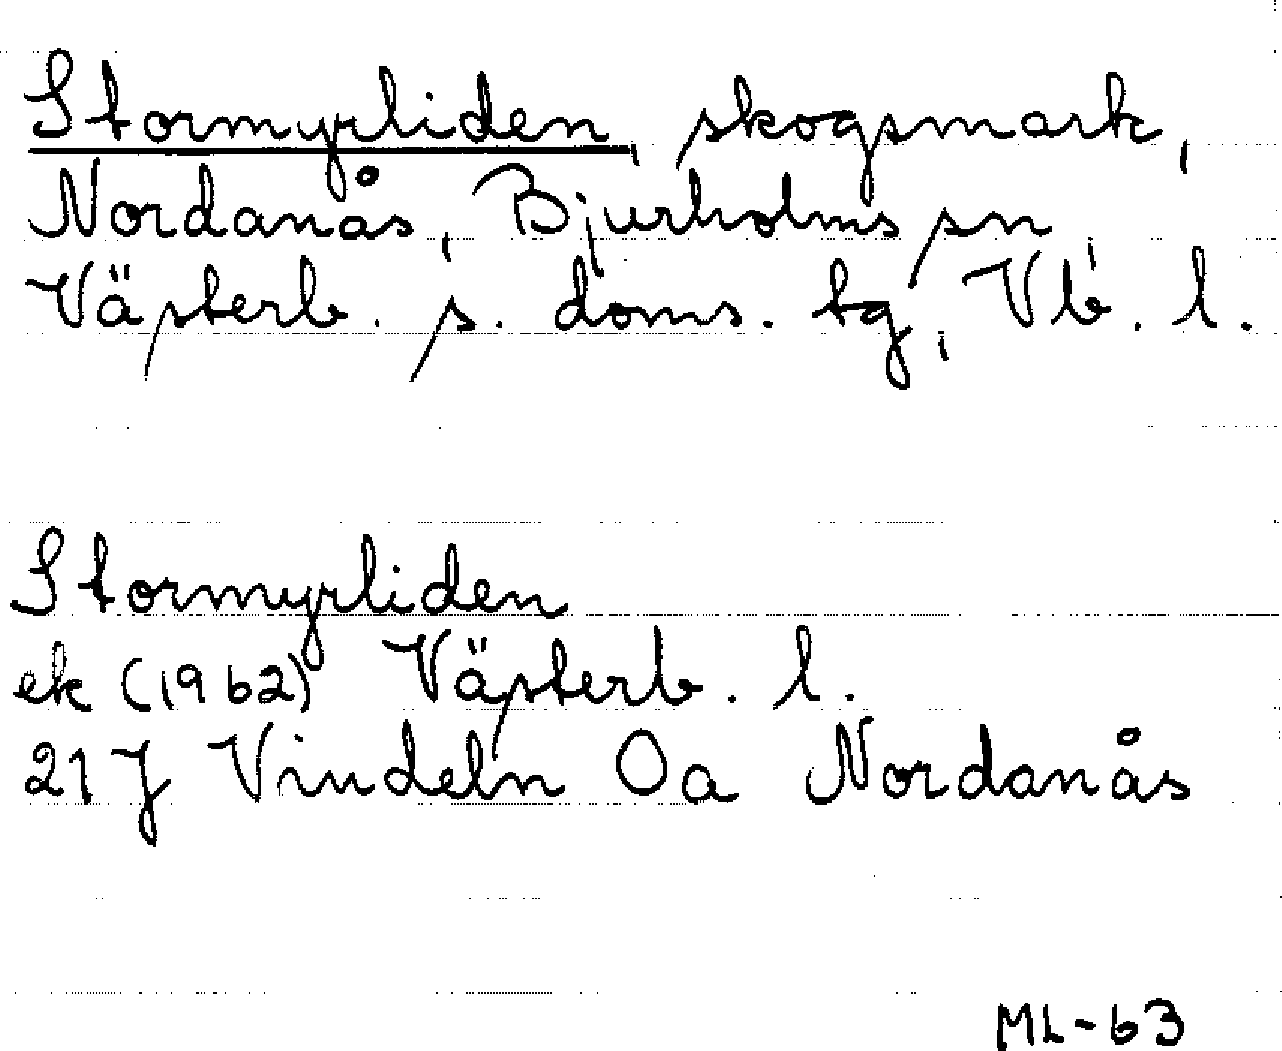 Stormyrliden, skogsmark,
Nordanås, Bjurholms sn
Västerb. s. doms. tg, Vb. l.
Stormyrliden
ek (1962) Västerb. l.
21J Vindeln 0a Nordanås
ML-63